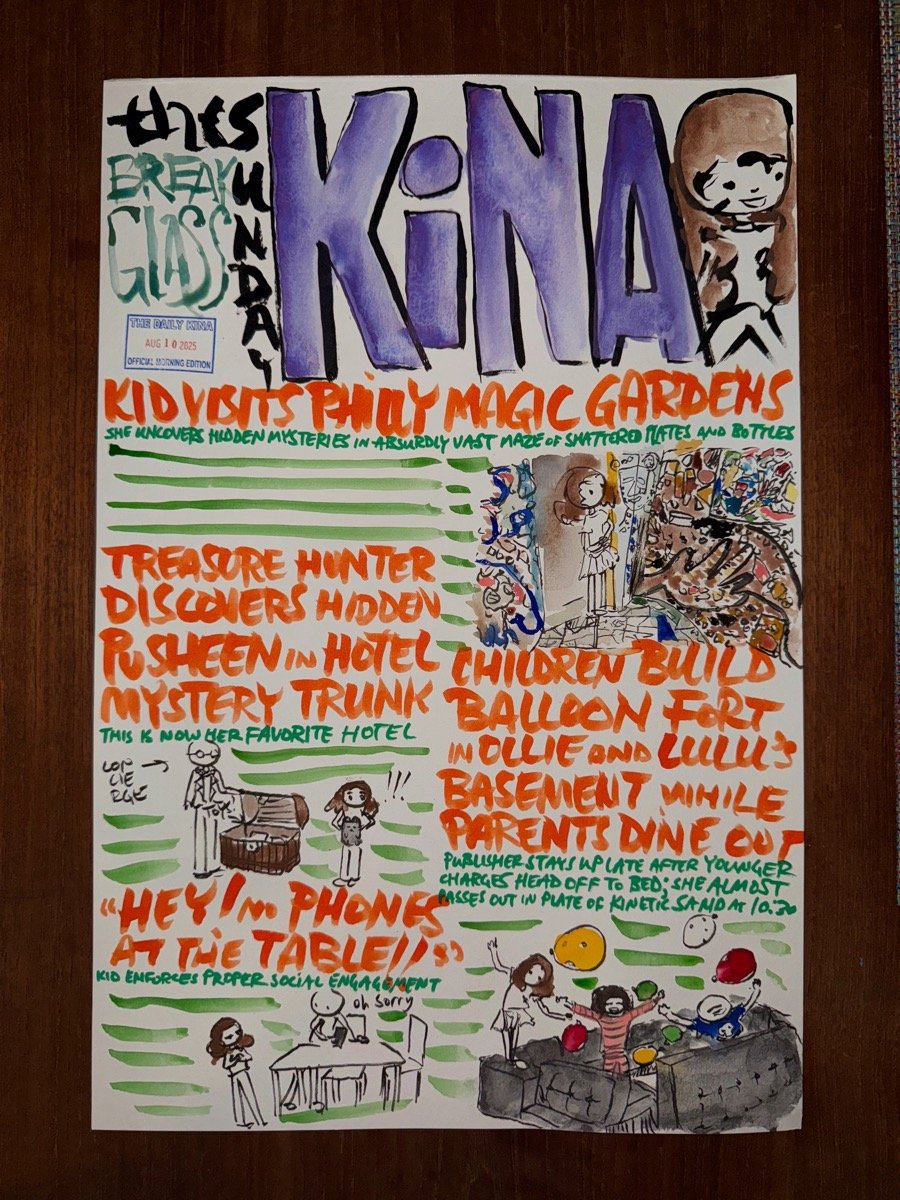 the SUNDAY
KiNA
BREAK
GLASS
THE DAILY KINA
AUG 10 2025
OFFICIAL MORNING EDITION
KID VISITS PHILLY MAGIC GARDENS
SHE UNCOVERS HIDDEN MYSTERIES IN ABSURDLY VAST MAZE OF SHATTERED PLATES AND BOTTLES
TREASURE HUNTER
DISCOVERS HIDDEN
PUSHEEN IN HOTEL
MYSTERY TRUNK
THIS IS NOW HER FAVORITE HOTEL
CON
CIE
RGE
!!!
"HEY! NO PHONES
AT THE TABLE!!"
KID ENFORCES PROPER SOCIAL ENGAGEMENT
oh sorry
CHILDREN BUILD
BALLOON FORT
IN OLLIE AND LULU'S
BASEMENT WHILE
PARENTS DINE OUT
PUBLISHER STAYS UP LATE AFTER YOUNGER
CHARGES HEAD OFF TO BED; SHE ALMOST
PASSES OUT IN PLATE OF KINETIC SAND AT 10:30